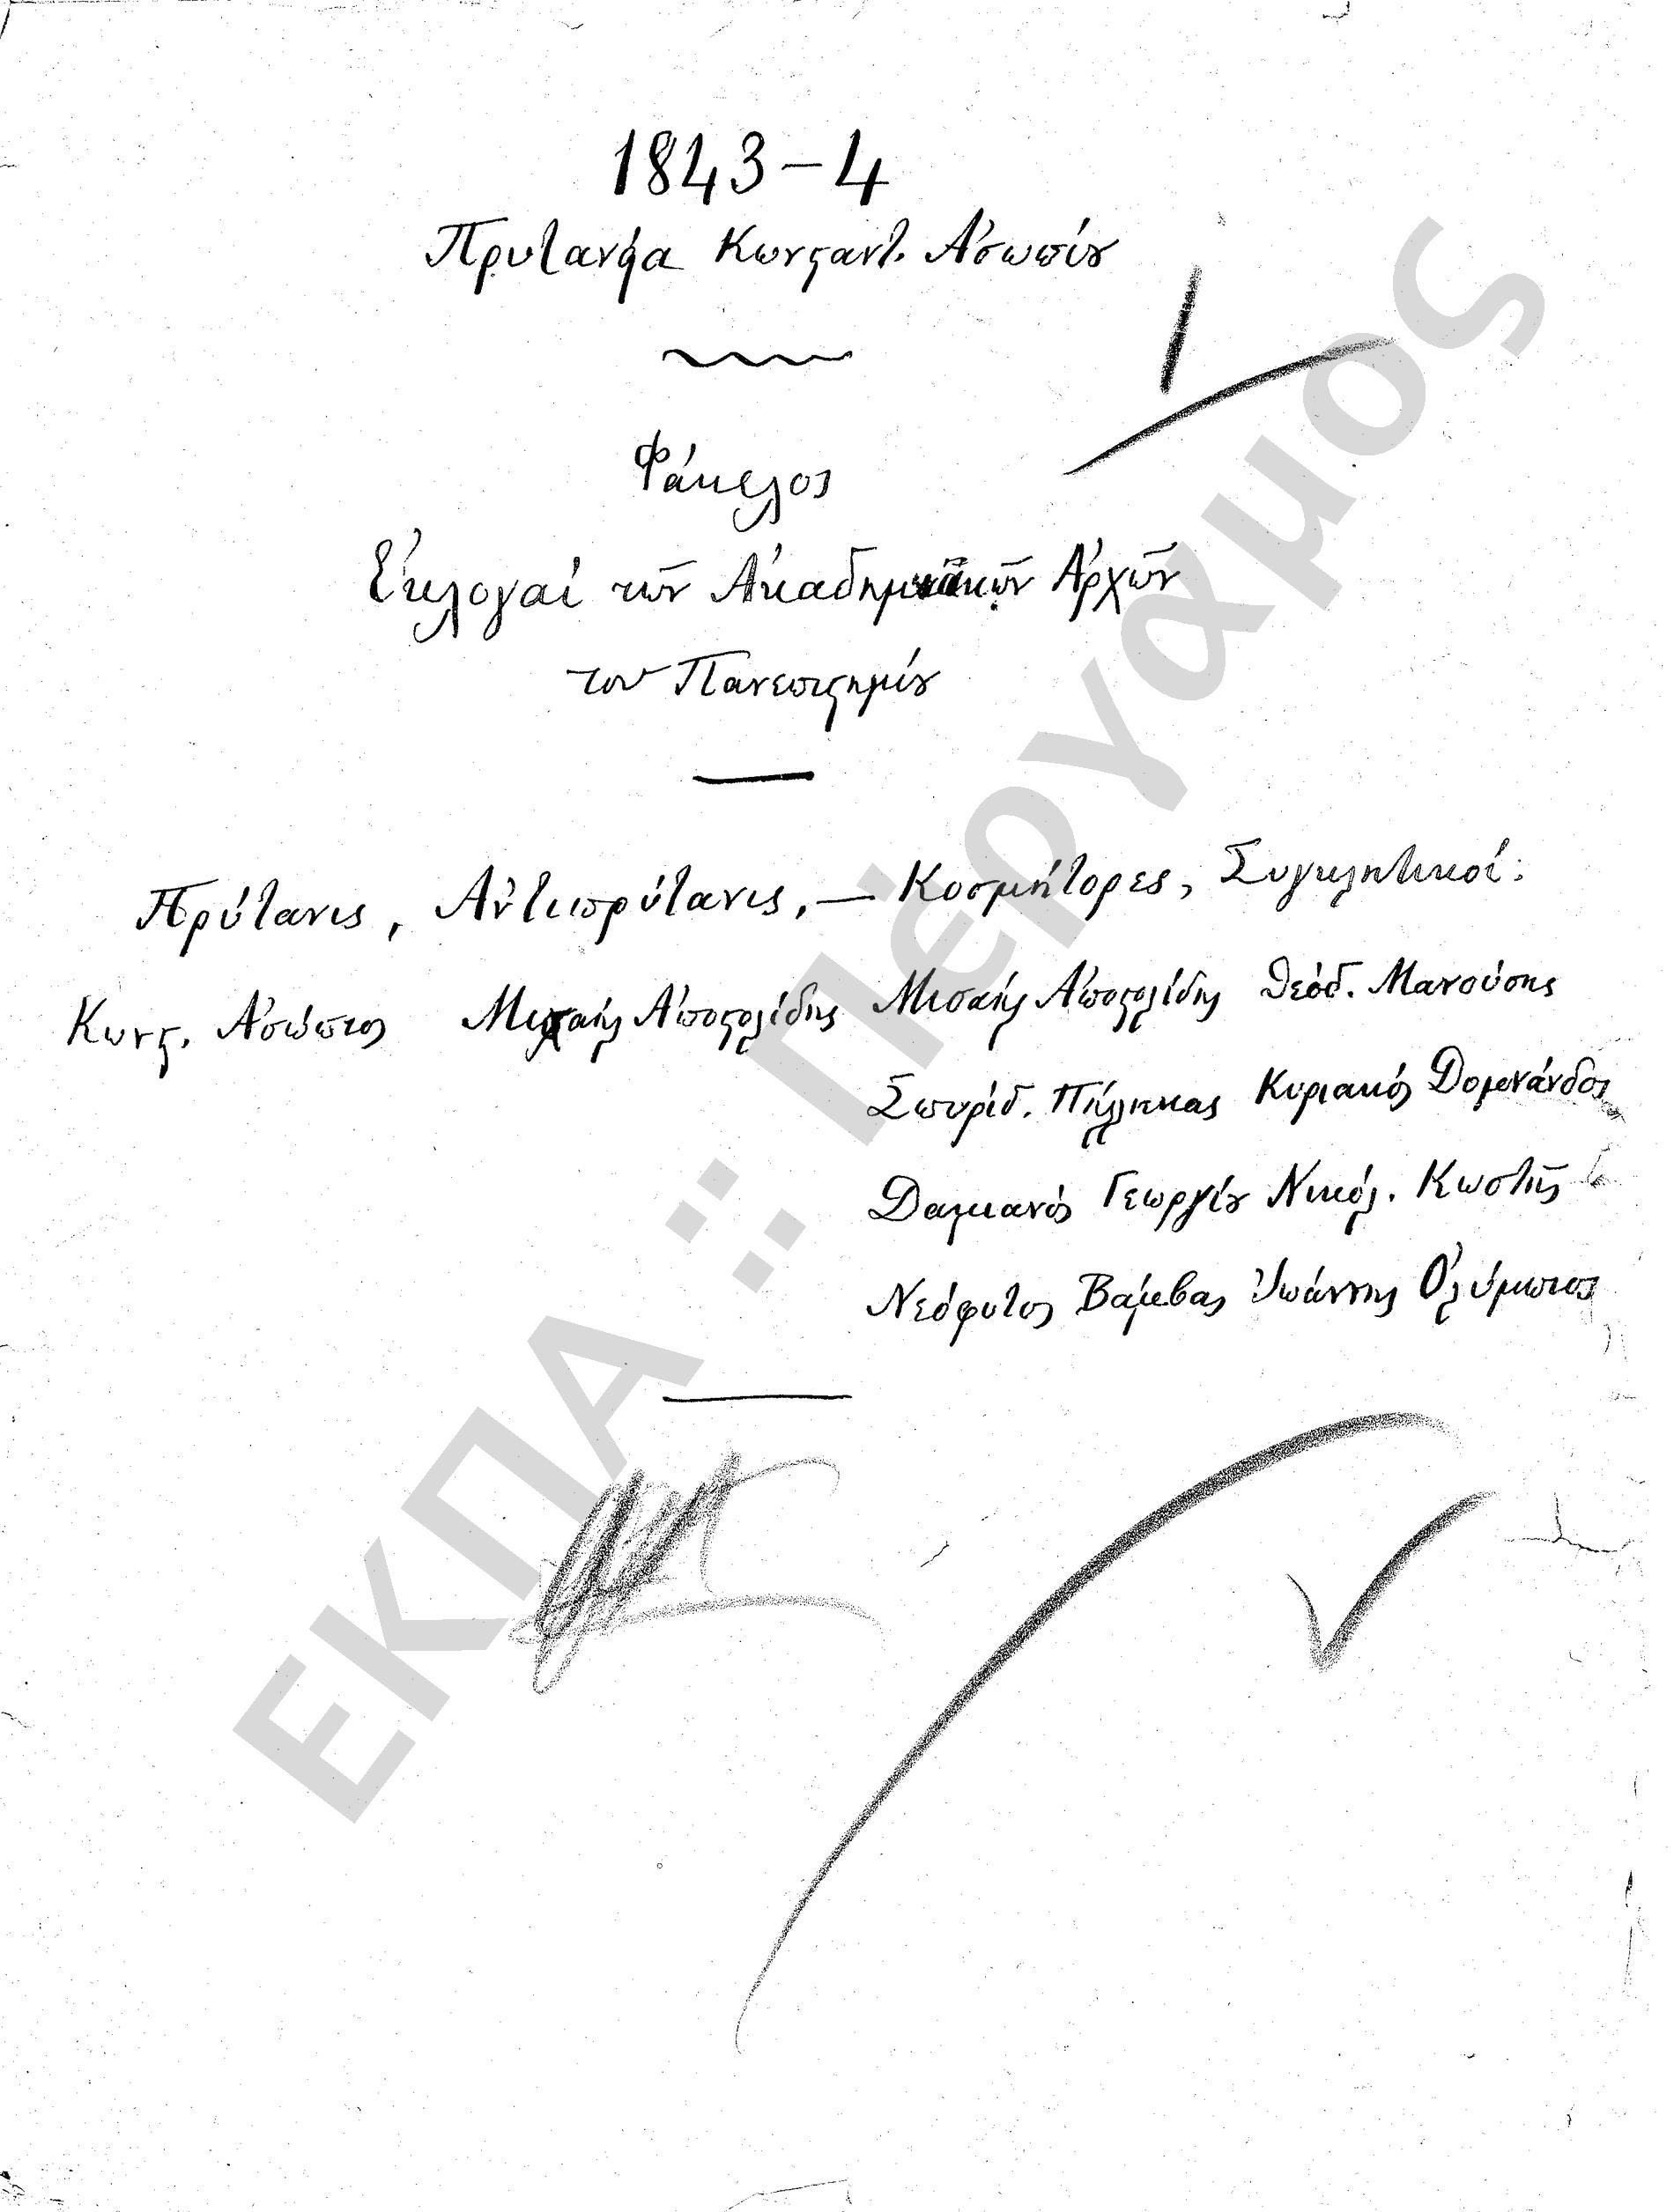 1843-4
Πρυτανεία Κωνςαντ. Ἀσωπίου
Φάκελος
Ἐκλογαί τῶν Ἀκαδημαϊκῶν Ἀρχῶν
του Πανεπιςημίου
Πρύτανις, Ἀντιπρύτανις, — Κοσμήτορες, Συγκλητικοί:
Κωνς. Ἀσώπιος Μισαήλ Ἀποςολίδης Μισαήλ Ἀποςολίδης Θεόδ. Μανούσης
Σπυρίδ. Πήλικας Κυριακός Δομνάνδος
Δαμιανός Γεωργίου Νικόλ. Κωστῆς
Νεόφυτος Βάμβας Ἰωάννης Ὀλύμπιος
ΕΚΠΑ :: Πέργαμος